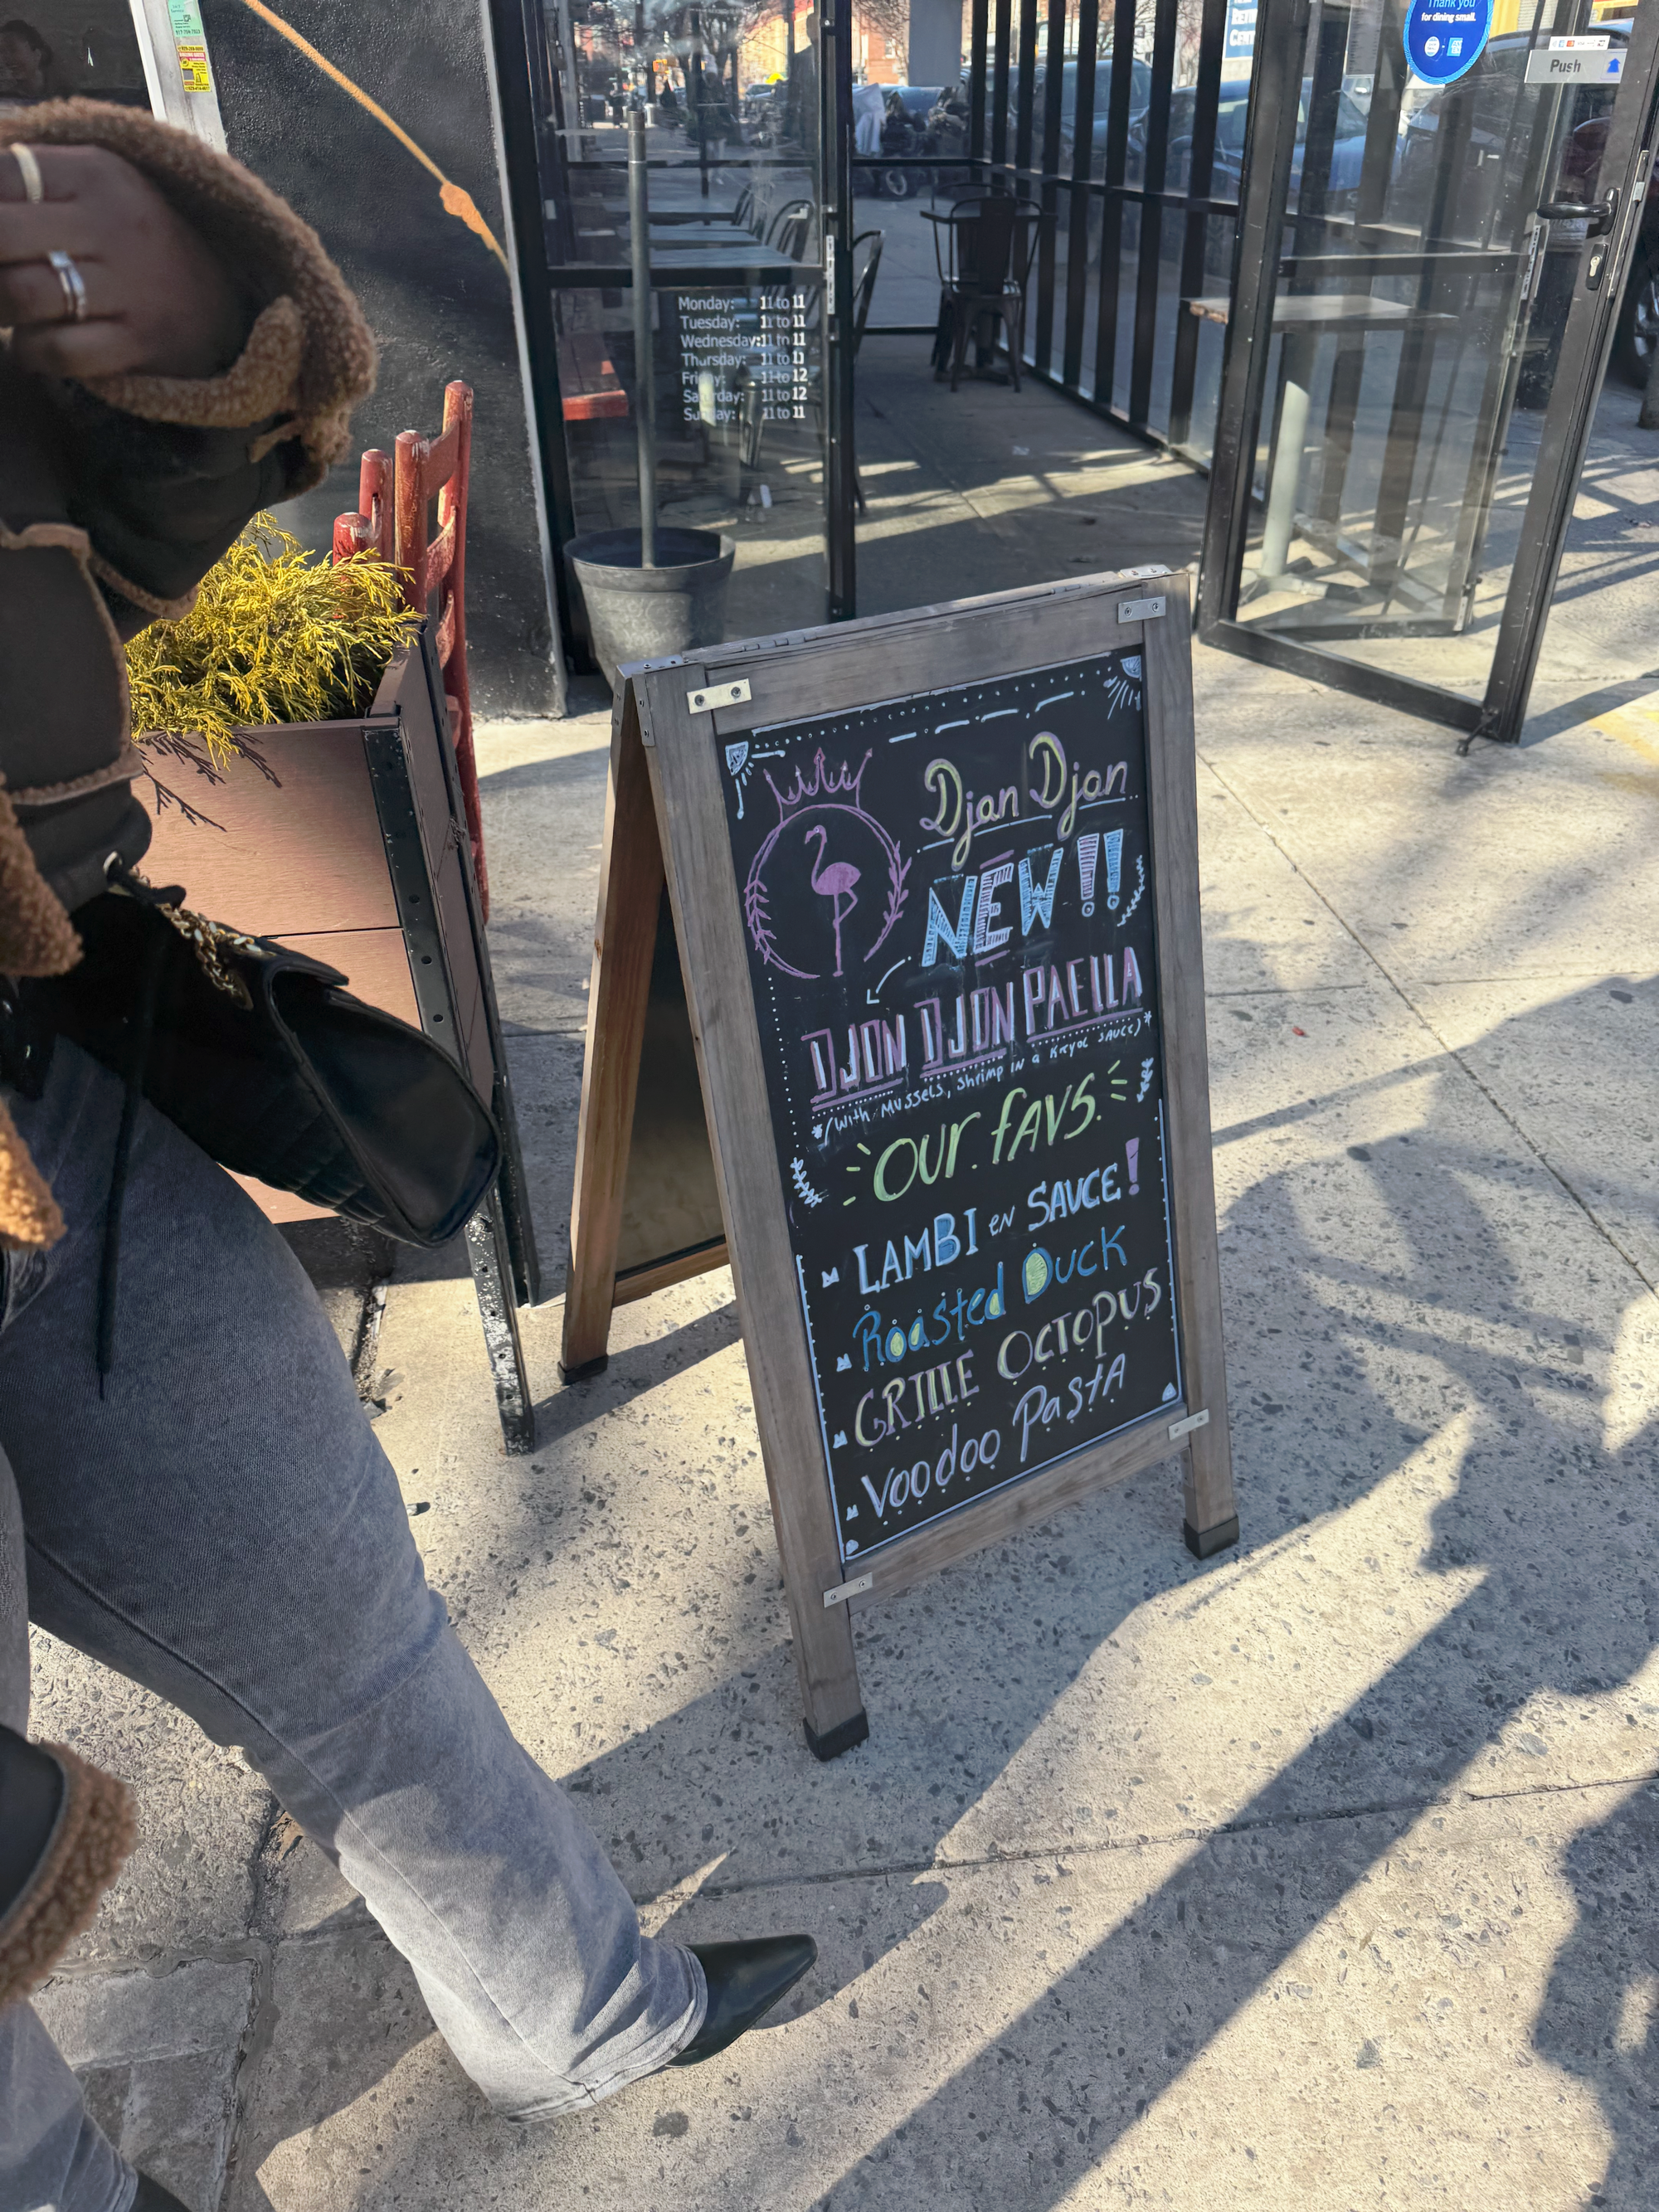 Thank you
for dining small.
Push
Monday: 11 to 11
Tuesday: 11 to 11
Wednesday: 11 to 11
Thursday: 11 to 11
Friday: 11 to 12
Saturday: 11 to 12
Sunday: 11 to 11
Djan Djan
NEW!!
DJON DJON PAELLA
*(with Mussels, Shrimp in a Kryol sauce)*
Our favs.
LAMBI en SAUCE!
Roasted Duck
GRILLE OCTOPUS
Voodoo Pasta